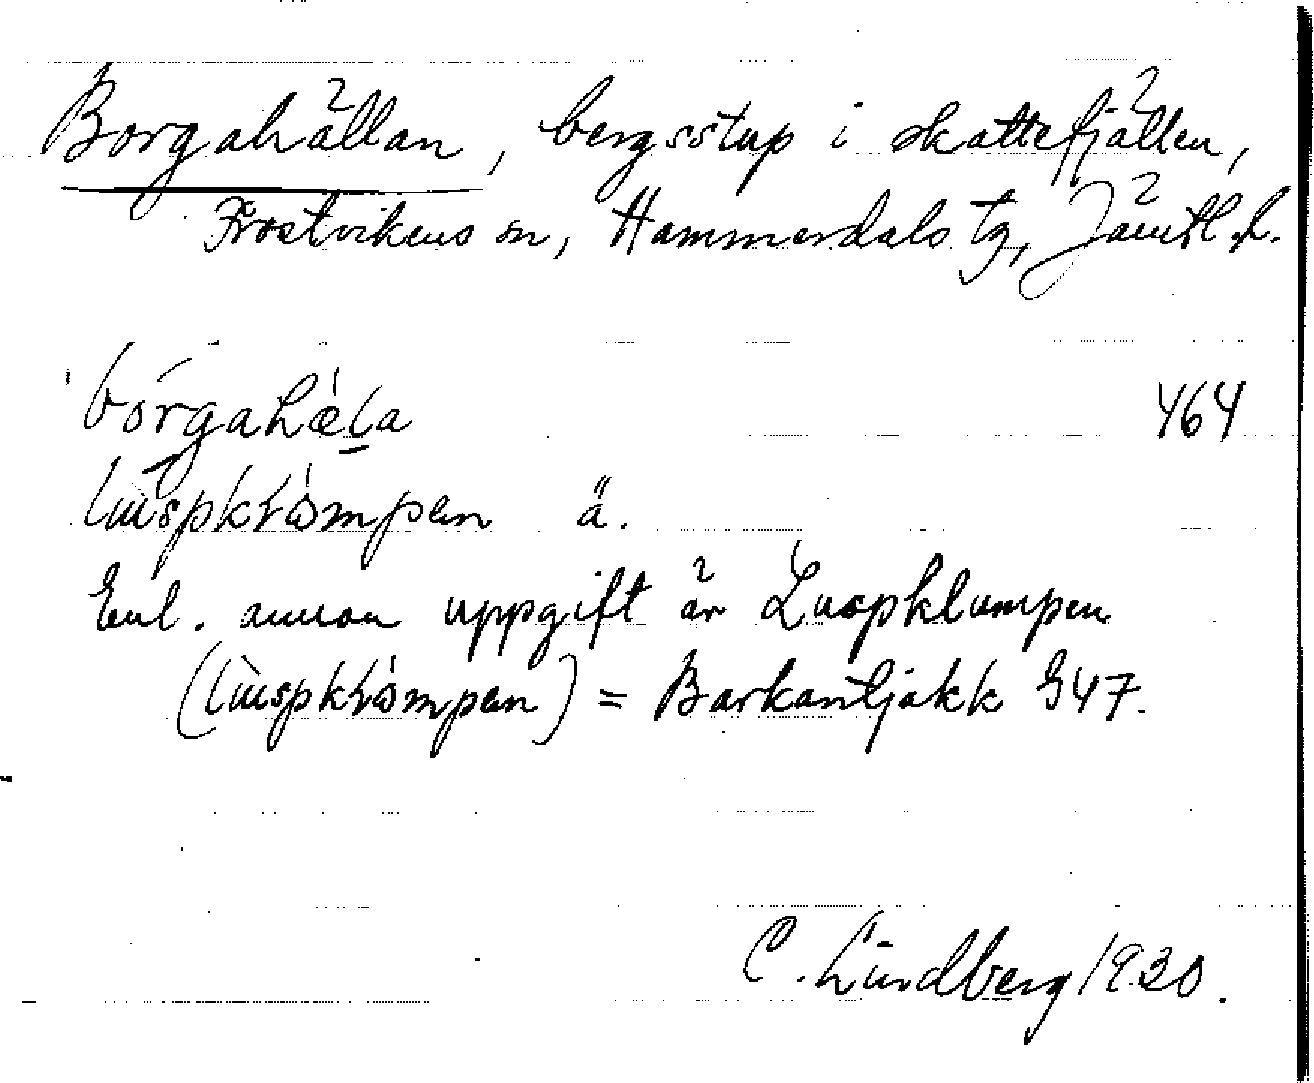 Borgahällan, bergsstup i skattefjällen,
Frostvikens sn, Hammerdals tg, Jämtl. l.
bórgahǽla 464
ä.
Enl. annan uppgift är Luspklumpen
= Barkantjakk 947.
C. Lindberg 1930.